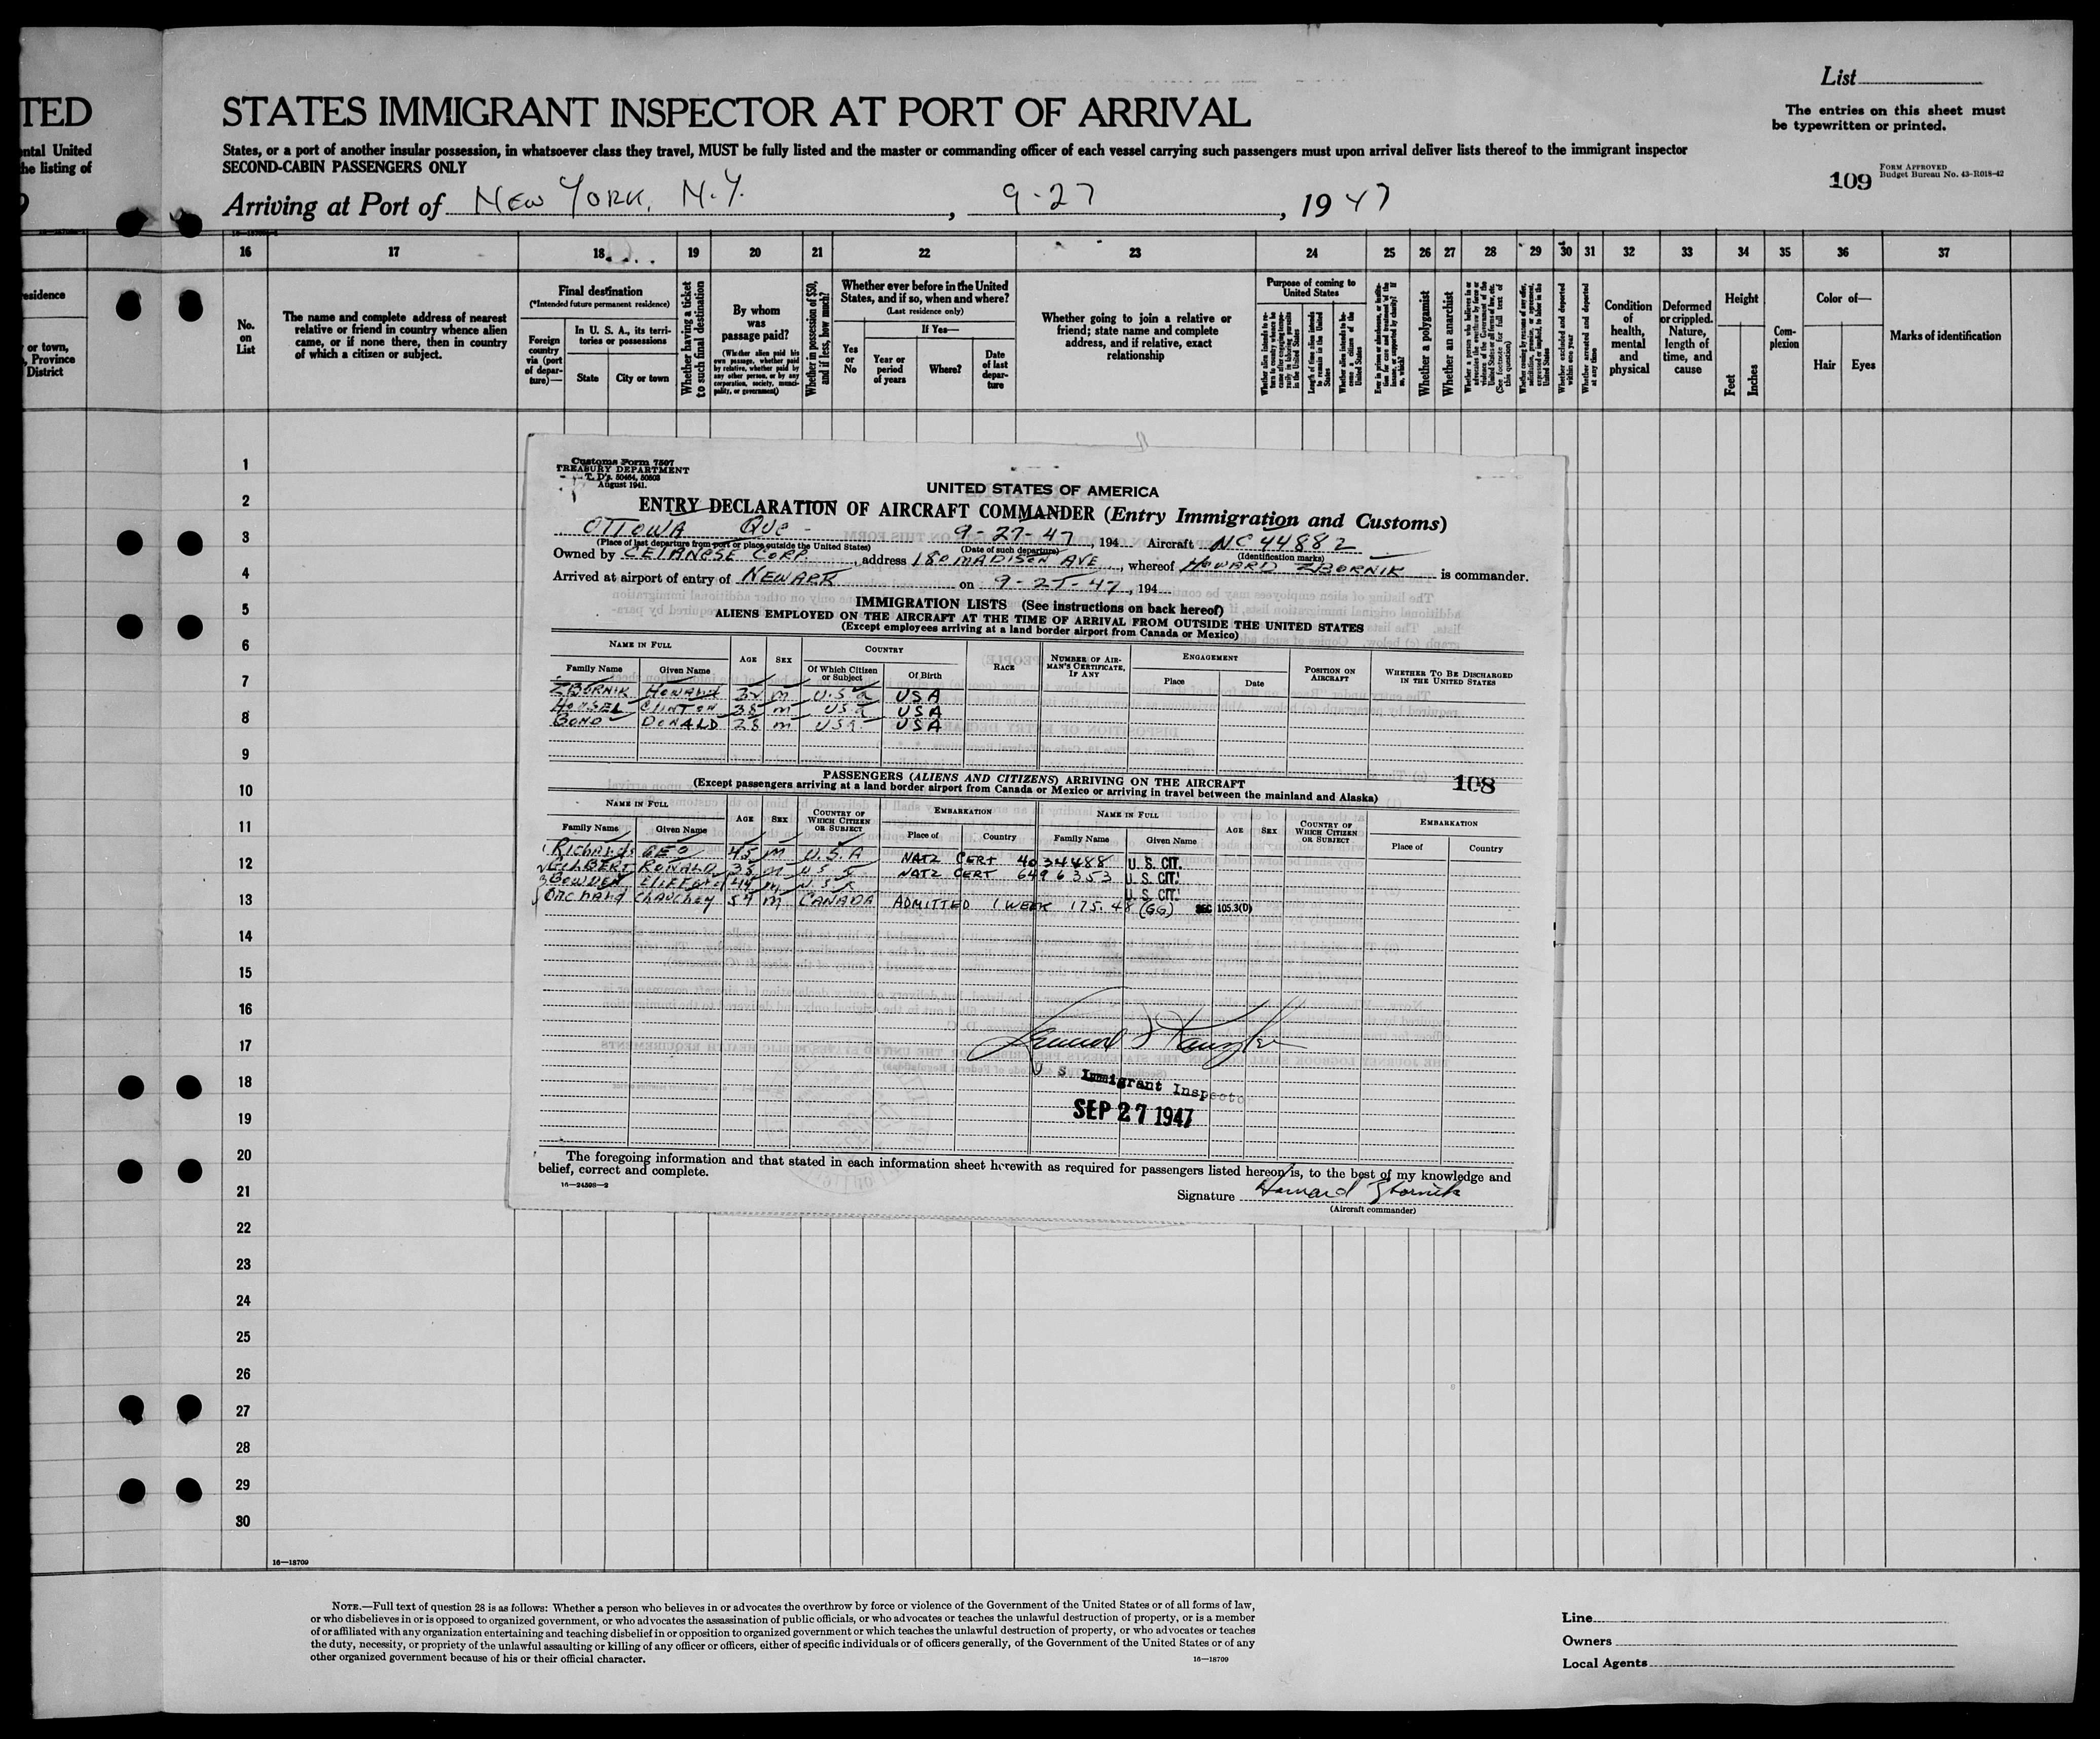 List
TED
STATES IMMIGRANT INSPECTOR AT PORT OF ARRIVAL
The entries on this sheet must
be typewritten or printed.
ental United
he listing of
States, or a port of another insular possession, in whatsoever class they travel, MUST be fully listed and the master or commanding officer of each vessel carrying such passengers must upon arrival deliver lists thereof to the immigrant inspector
SECOND-CABIN PASSENGERS ONLY
109
FORM APPROVED
Budget Bureau No. 43-R018-42
Arriving at Port of NEW YORK, N.Y., 9-27, 1947
16 17 18 19 20 21 22 23 24 25 26 27 28 29 30 31 32 33 34 35 36 37
esidence
or town,
, Province
District
No.
on
List
The name and complete address of nearest
relative or friend in country whence alien
came, or if none there, then in country
of which a citizen or subject.
Final destination
(*Intended future permanent residence)
Foreign
country
via (port
of depar-
ture)—
In U. S. A., its terri-
tories or possessions
State
City or town
Whether having a ticket
to such final destination
By whom
was
passage paid?
(Whether alien paid his
own passage, whether paid
by relative, whether paid by
any other person, or by any
corporation, society, munici-
pality, or government)
Whether in possession of $50,
and if less, how much?
Whether ever before in the United
States, and if so, when and where?
(Last residence only)
Yes
or
No
If Yes—
Year or
period
of years
Where?
Date
of last
depar-
ture
Whether going to join a relative or
friend; state name and complete
address, and if relative, exact
relationship
Purpose of coming to
United States
Length of time alien intends
to remain in the United
States
Whether alien intends to be-
come a citizen of the
United States
Whether a polygamist
Whether an anarchist
Whether excluded and deported
within one year
Whether arrested and deported
at any time
Condition
of
health,
mental
and
physical
Deformed
or crippled.
Nature,
length of
time, and
cause
Height
Feet
Inches
Com-
plexion
Color of—
Hair
Eyes
Marks of identification
1
2
3
4
5
6
7
8
9
10
11
12
13
14
15
16
17
18
19
20
21
22
23
24
25
26
27
28
29
30
Customs Form 7507
TREASURY DEPARTMENT
T. D's. 50464, 50503
August 1941.
UNITED STATES OF AMERICA
ENTRY DECLARATION OF AIRCRAFT COMMANDER (Entry Immigration and Customs)
OTTOWA QUE - 9-27-47, 194 Aircraft NC 44882
(Place of last departure from port or place outside the United States) (Date of such departure) (Identification marks)
Owned by CELANESE CORP., address 180 MADISON AVE, whereof HOWARD ZBORNIK is commander.
Arrived at airport of entry of NEWARK on 9-27-47, 194
IMMIGRATION LISTS (See instructions on back hereof)
ALIENS EMPLOYED ON THE AIRCRAFT AT THE TIME OF ARRIVAL FROM OUTSIDE THE UNITED STATES
(Except employees arriving at a land border airport from Canada or Mexico)
NAME IN FULL AGE SEX COUNTRY RACE NUMBER OF AIR-
MAN'S CERTIFICATE,
IF ANY ENGAGEMENT POSITION ON
AIRCRAFT WHETHER TO BE DISCHARGED
IN THE UNITED STATES
Family Name Given Name Of Which Citizen
or Subject Of Birth Place Date
ZBORNIK HOWARD 32 M U.S a USA
HONSEL CLINTON 38 m US a USA
BOND DONALD 28 m USA USA
PASSENGERS (ALIENS AND CITIZENS) ARRIVING ON THE AIRCRAFT
108
(Except passengers arriving at a land border airport from Canada or Mexico or arriving in travel between the mainland and Alaska)
NAME IN FULL AGE SEX COUNTRY OF
WHICH CITIZEN
OR SUBJECT EMBARKATION NAME IN FULL AGE SEX COUNTRY OF
WHICH CITIZEN
OR SUBJECT EMBARKATION
Family Name Given Name Place of Country Family Name Given Name Place of Country
1 Richards GEO 45 M U.S.A NATZ CERT 4034488 U. S. CIT.
2 GILBERT RONALD 38 M U S A NATZ CERT 6496353 U. S. CIT.
3 BOWDEN Clifford 44 m U.S.A U. S. CIT.
Orchard Chauchey 54 m CANADA ADMITTED 1 WEEK 175.48 (GG) SEC 105.3(D)
U S Immigrant Inspector
SEP 27 1947
The foregoing information and that stated in each information sheet herewith as required for passengers listed hereon is, to the best of my knowledge and
belief, correct and complete.
16—24508—2
Signature Howard Zbornik
(Aircraft commander)
16—18709
NOTE.—Full text of question 28 is as follows: Whether a person who believes in or advocates the overthrow by force or violence of the Government of the United States or of all forms of law,
or who disbelieves in or is opposed to organized government, or who advocates the assassination of public officials, or who advocates or teaches the unlawful destruction of property, or is a member
of or affiliated with any organization entertaining and teaching disbelief in or opposition to organized government or which teaches the unlawful destruction of property, or who advocates or teaches
the duty, necessity, or propriety of the unlawful assaulting or killing of any officer or officers, either of specific individuals or of officers generally, of the Government of the United States or of any
other organized government because of his or their official character.
16—18709
Line
Owners
Local Agents